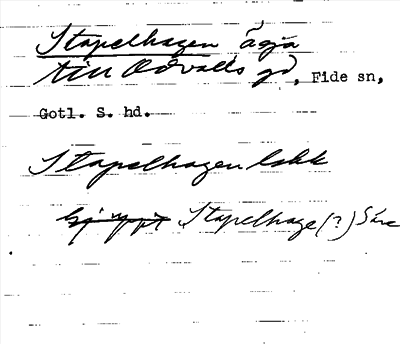 Stapelhagen, äga
till Odvalls gd, Fide sn,
Gotl. S. hd.
Stapelhagen lokk
Stapelhage (?)